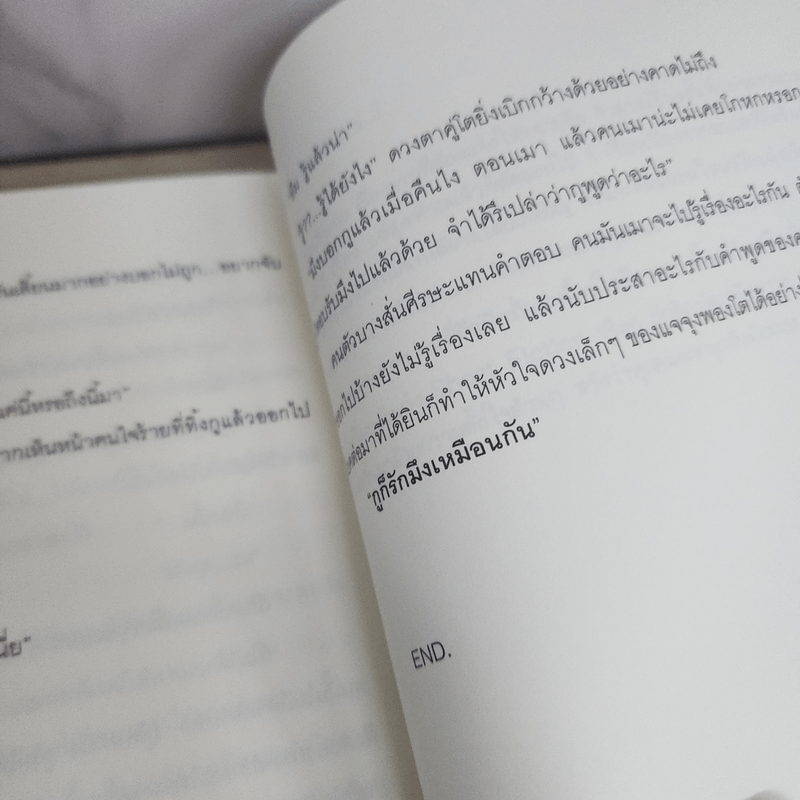 ันเสี้ยนมากอย่างบอกไม่ถูก...อยากจับ
แค่นี้หรอถึงนี้มา"
ากเห็นหน้าคนใจร้ายที่ทิ้งกูแล้วออกไป
นี่ย"
รู้แล้วน่า"
รู้ได้ยังไง" ดวงตาคู่โตยิ่งเบิกกว้างด้วยอย่างคาดไม่ถึง
บอกกูแล้วเมื่อคืนไง ตอนเมา แล้วคนเมาน่ะไม่เคยโกหกหรอก
รับมึงไปแล้วด้วย จำได้รึเปล่าว่ากูพูดว่าอะไร"
คนตัวบางสั่นศีรษะแทนคำตอบ คนมันเมาจะไปรู้เรื่องอะไรกัน
อกไปบ้างยังไม่รู้เรื่องเลย แล้วนับประสาอะไรกับคำพูดของค
ต่อมาที่ได้ยินก็ทำให้หัวใจดวงเล็กๆ ของแจจุงพองโตได้อย่าง
"กูก็รักมึงเหมือนกัน"
END.